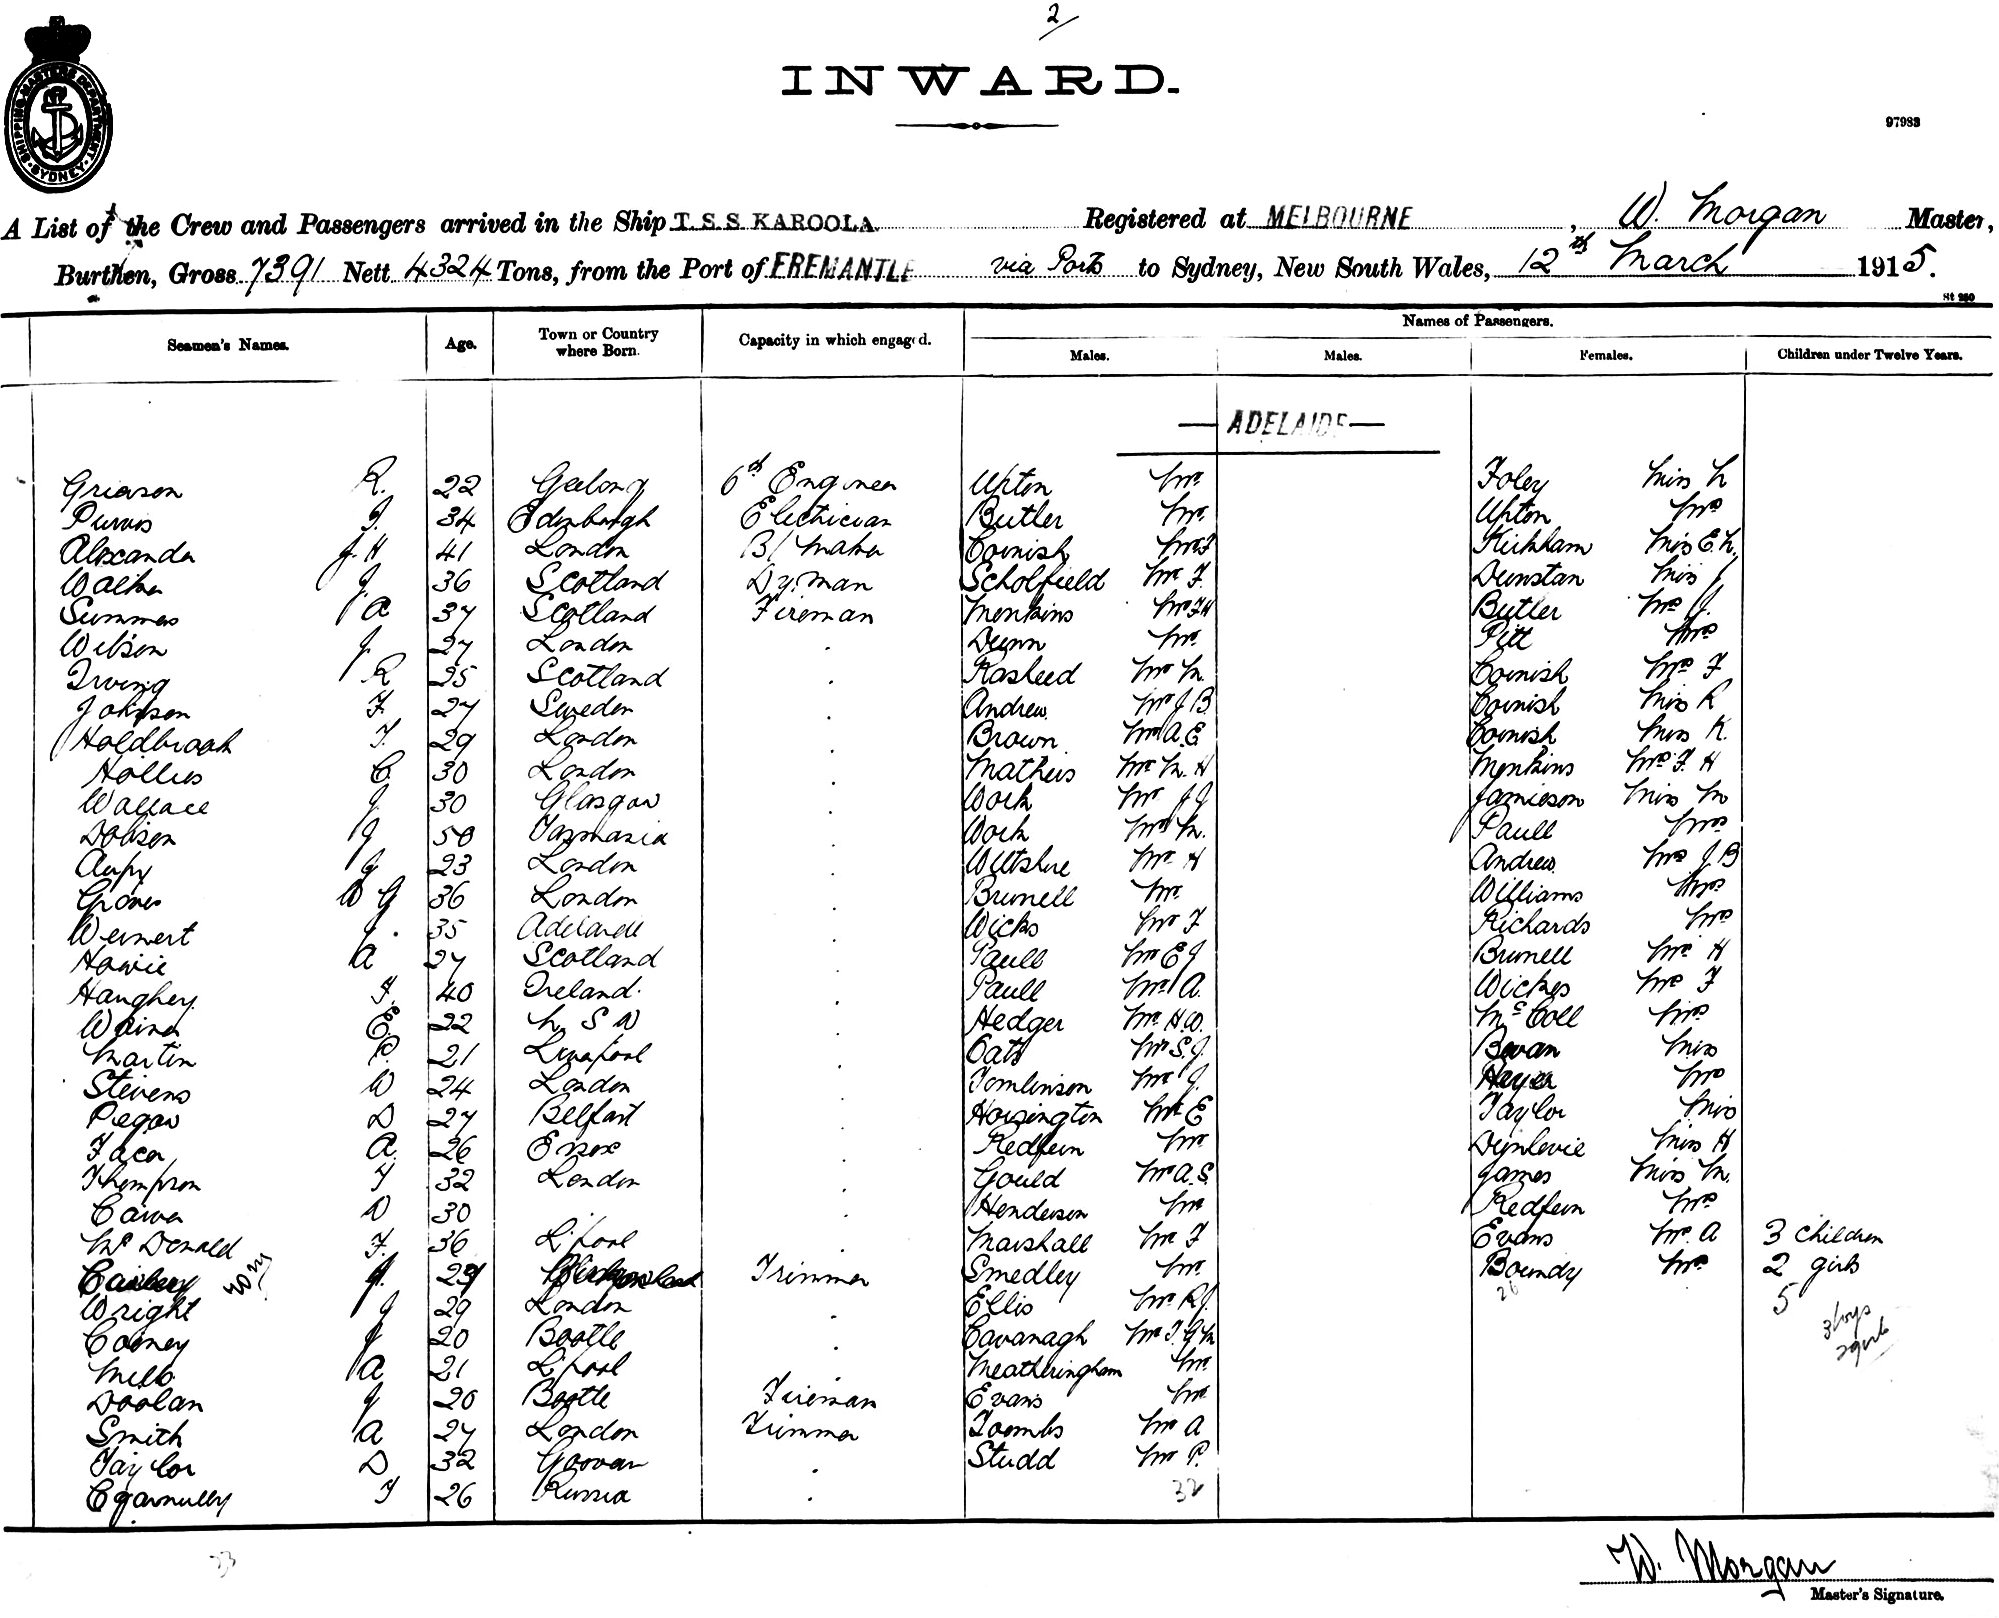 2
INWARD.
97983
SHIPPING MASTERS DEPARTMENT SYDNEY
A List of the Crew and Passengers arrived in the Ship T.S.S. KAROOLA Registered at MELBOURNE, W. Morgan Master,
Burthen, Gross 7391 Nett 4324 Tons, from the Port of FREMANTLE via Ports to Sydney, New South Wales, 12th March 1915.
St 250
Names of Passengers.
Seamen's Names. Age. Town or Country where Born. Capacity in which engaged. Males. Males. Females. Children under Twelve Years.
— ADELAIDE —
Grierson R. 22 Geelong 6th Engineer Upton Mr. Foley Miss
Purves J. 34 Edinburgh Electrician Butler Mr. Upton Mrs
Alexander J. H 41 London B/ Maker Cornish Mr F Kirkham Miss E.
Walker J. 36 Scotland Dy. Man Scholfield Mr F. Dunstan Miss J.
Summers A 37 Scotland Fireman Menkins Mr F H Butler Mrs J.
Wilson J. 27 London . Dunn Mr. Pitt Mrs
Irving R 25 Scotland . Rasheed Mr M. Cornish Mrs F
Johnson F. 27 Sweden . Andrew Mr J B Cornish Miss R
Holdbrook T. 29 London . Brown Mr A. E Cornish Miss K.
Hollies C. 30 London . Mathews Mr M. H Menkins Mrs F. H
Wallace J. 30 Glasgow . Work Mr J J Jamieson Miss M
Dobson J 50 Tasmania . Work Mrs M. Paull Mrs
J 23 London . Wiltshire Mr H Andrew Mrs J. B
Groves W G 36 London . Brunell Mr. Williams Mrs
Weinert J. 35 Adelaide . Wicks Mr F Richards Mrs
Howie A 27 Scotland . Paull Mr E J Brunell Mrs H
Haughey F. 40 Ireland. . Paull Mr A. Wickes Mrs F
E. 22 N S W . Hedger Mr. H. W. McColl Mrs
Martin P. 21 Liverpool . Oats Mr S. J. Bevan Miss
Stevens W 24 London . Tomlinson Mr J. Mrs
D 27 Belfast . Horsington Mr E Taylor Miss
A. 26 Essex . Redfern Mr Dunlevie Miss H
Thompson T 32 London . Gould Mr A. S. James Miss M.
Carver D 30 . Henderson Mr Redfern Mrs
McDonald F. 36 L'pool . Marshall Mr F Evans Mrs A 3 children
J. Trimmer Smedley Mr. Boundy Mrs 2 girls
Wright J 29 London . Ellis Mr R J. 26 5
Cooney J 20 Bootle . Cavanagh Mr T. G M 3 boys
Mills A 21 L'pool . Meatheringham Mr. 2 girls
Doolan J 20 Bootle Fireman Evans Mr.
Smith A 27 London Trimmer Toombs Mr A
Taylor D 32 Goovan . Studd Mr P.
T 26 Russia . 32
33
W. Morgan
Master's Signature.